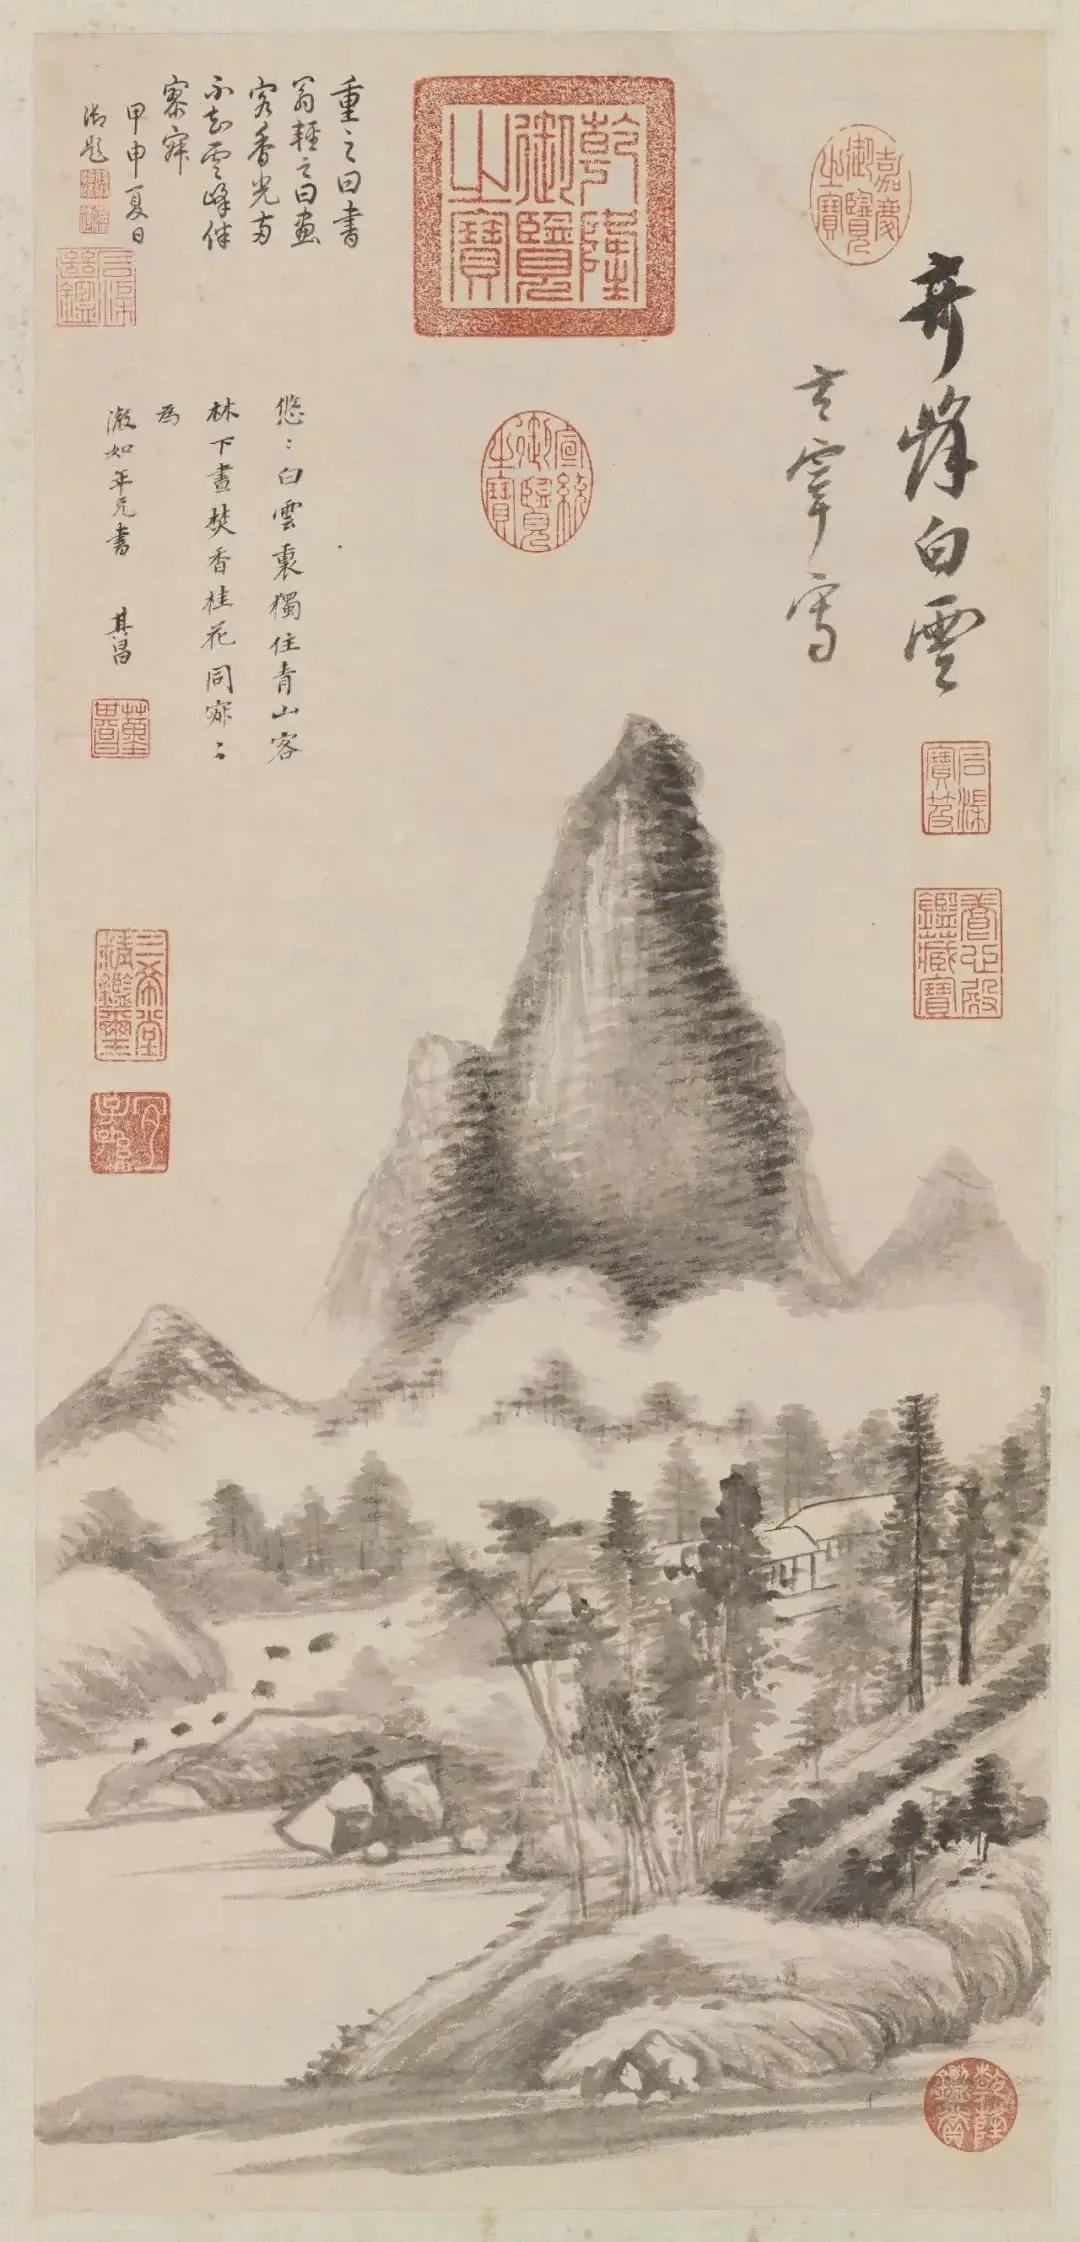 嘉慶御覽之寶
奇峰白雲
玄宰寫
石渠寶笈
養心殿鑑藏寶
乾隆御覽之寶
宣統御覽之寶
重之曰書
翁輕之曰畫
客香光两
不知雲峰伴
寥寂
甲申夏日
御題
悠〻白雲裏獨住青山客
林下晝焚香桂花同寂〻
為
澂如年兄書 其昌
三希堂精鑑璽
宜子孫
乾隆鑑賞